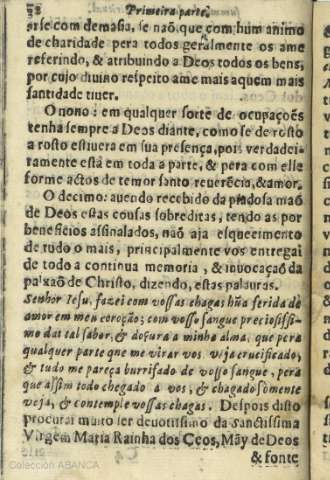 28 Primeira parte.
arse com demasia, se naõ que com hum animo
de charidade pera todos geralmente os ame
referindo, & atribuindo a Deos todos os bens,
por cujo diuino respeito ame mais aquem mais
santidade tiuer.
O nono: em qualquer sorte de ocupaçoẽs
tenha sempre a Deos diante, como se de rosto
a rosto estiuera em sua presença, pois verdadei-
ramente está em toda a parte, & pera com elle
forme actos de temor santo reuerẽcia, & amor.
O decimo: auendo recebido da piadosa maõ
de Deos estas cousas sobreditas, tendo as por
beneficios assinalados, não aja esquecimento
de tudo o mais, principalmente vos entregai
de todo a continua memoria, & inuocaçaõ da
paixaõ de Christo, dizendo, estas palauras.
Senhor Iesu, fazei com vossas chagas hũa ferida de
amor em meu coroção; com vosso sangue preciosissi-
mo dai tal sabor, & doçura a minha alma, que pera
qualquer parte que me virar vos veja crucificado,
& tudo me pareça burrifado de vosso sangue, pera
que assim todo chegado a vos, & chagado somente
veja, & contemple vossas chagas. Despois disto
procurai muito ser deuotissimo da sanctissima
Virgem Maria Rainha dos Ceos, Mãy de Deos
& fonte
Colección ABANCA